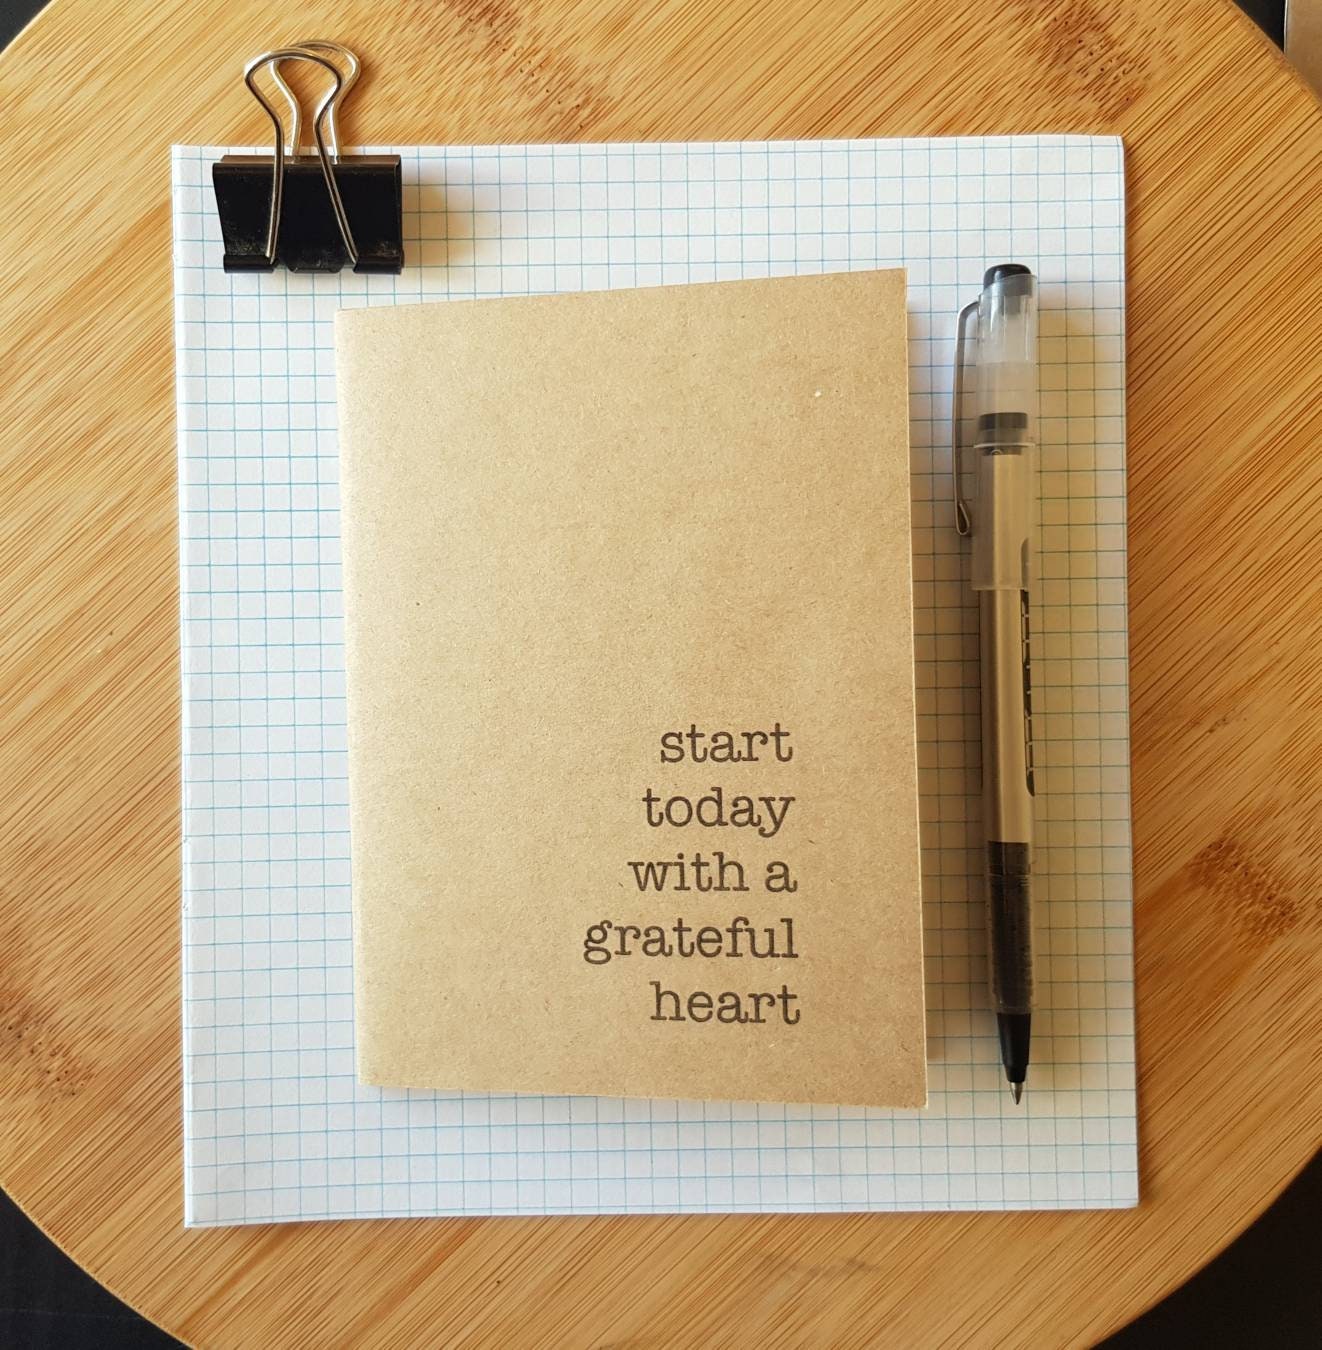 start
today
with a
grateful
heart